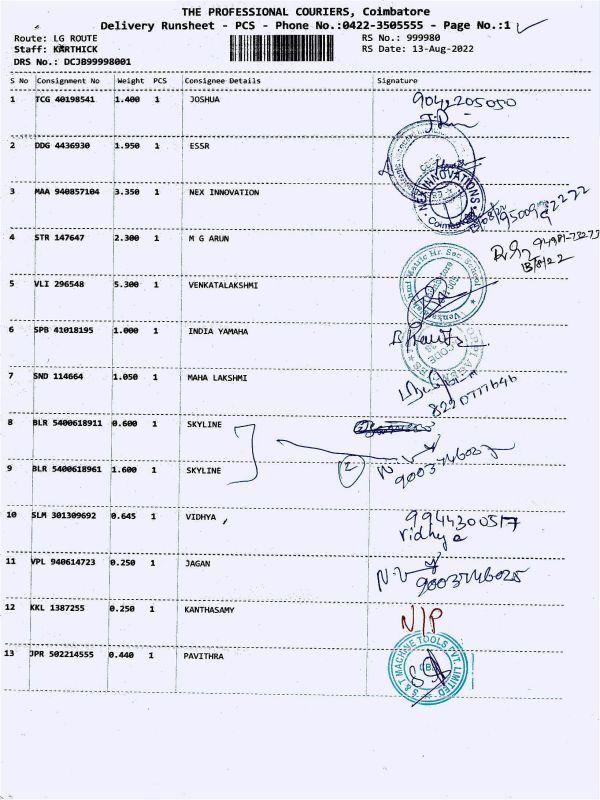 THE PROFESSIONAL COURIERS, Coimbatore
Delivery Runsheet - PCS - Phone No.:0422-3505555 - Page No.:1
Route: LG ROUTE RS No.: 999980
Staff: KARTHICK RS Date: 13-Aug-2022
DRS No.: DCJB99998001
S No Consignment No Weight PCS Consignee Details Signature
1 TCG 40198541 1.400 1 JOSHUA
9042205050
2 DDG 4436930 1.950 1 ESSR
3 MAA 940857104 3.350 1 NEX INNOVATION
NEX INNOVATIONS
Coimbatore
4 STR 147647 2.300 1 M G ARUN
13/8/22
5 VLI 296548 5.300 1 VENKATALAKSHMI
Matric Hr. Sec. School
6 SPB 41018195 1.000 1 INDIA YAMAHA
7 SND 114664 1.050 1 MAHA LAKSHMI
8 BLR 5400618911 0.600 1 SKYLINE
9 BLR 5400618961 1.600 1 SKYLINE
2
10 SLM 301309692 0.645 1 VIDHYA
9944300517
vidhya
11 VPL 940614723 0.250 1 JAGAN
12 KKL 1387255 0.250 1 KANTHASAMY
N/P
13 JPR 502214555 0.440 1 PAVITHRA
S & T MACHINE TOOLS PVT. LIMITED